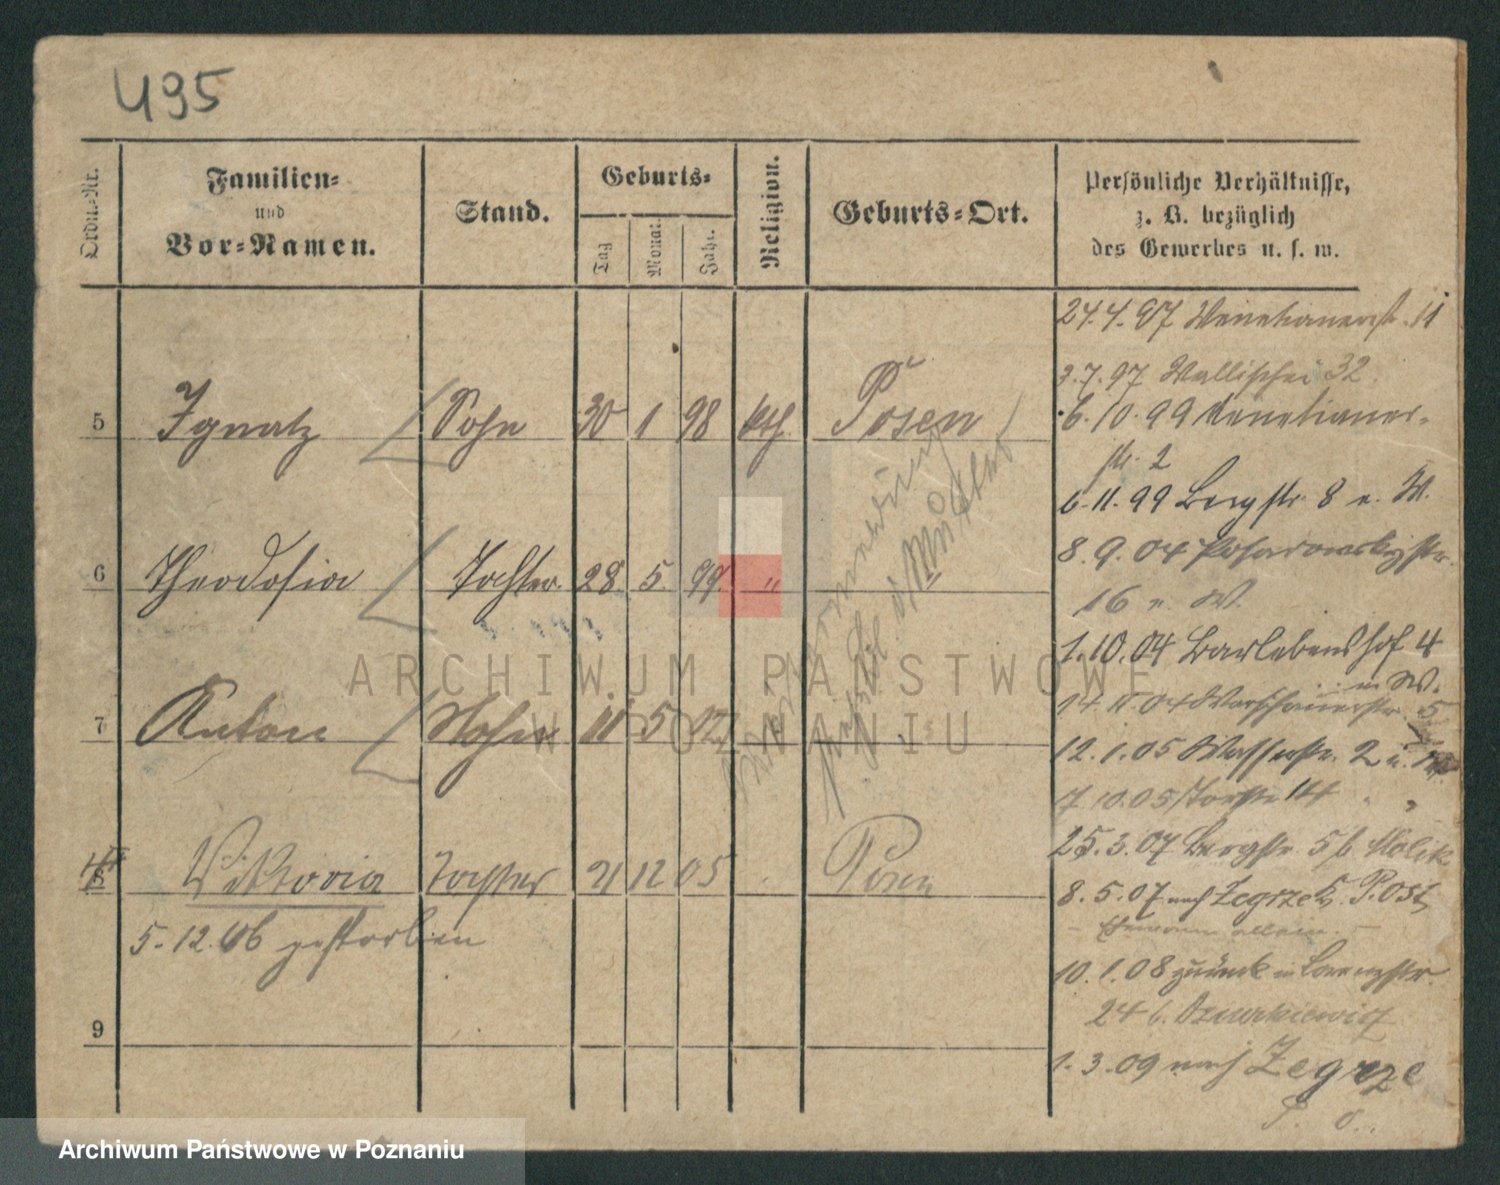 495
Ordn.-Nr.
Familien-
und
Vor-Namen.
Stand.
Geburts-
Tag
Monat.
Jahr.
Religion.
Geburts-Ort.
Persönliche Verhältnisse,
z. B. bezüglich
des Gewerbes u. s. w.
24.4.97 Venetianerstr. 11
3.7.97 Wallischei 32.
5 Ignatz Sohn 30 1 98 kth. Posen
6.10.99 Venetianer-
str. 2
6.11.99 Bergstr. 8 u. W.
6 Theodosia Tochter 28. 5. 99. "
8.9.04
16 u. W.
1.10.04 Barlebenshof 4
in W.
7 Anton Sohn 11 5 02
14.11.04 Warschauerstr. 5
12.1.05 Wasserstr. 2 u.
7.10.05 Torstr. 14
8 Viktoria Tochter 21 12 05 Posen
5.12.06 gestorben
25.3.07 Bergstr. 5 b.
8.5.07 nach Zegrze K. P. Ost
Ehemann allein.
10.1.08 zurück in
24 b.
9
1.3.09 nach Zegrze
P. O.
d. Mutter
ARCHIWUM PAŃSTWOWE
W POZNANIU
Archiwum Państwowe w Poznaniu